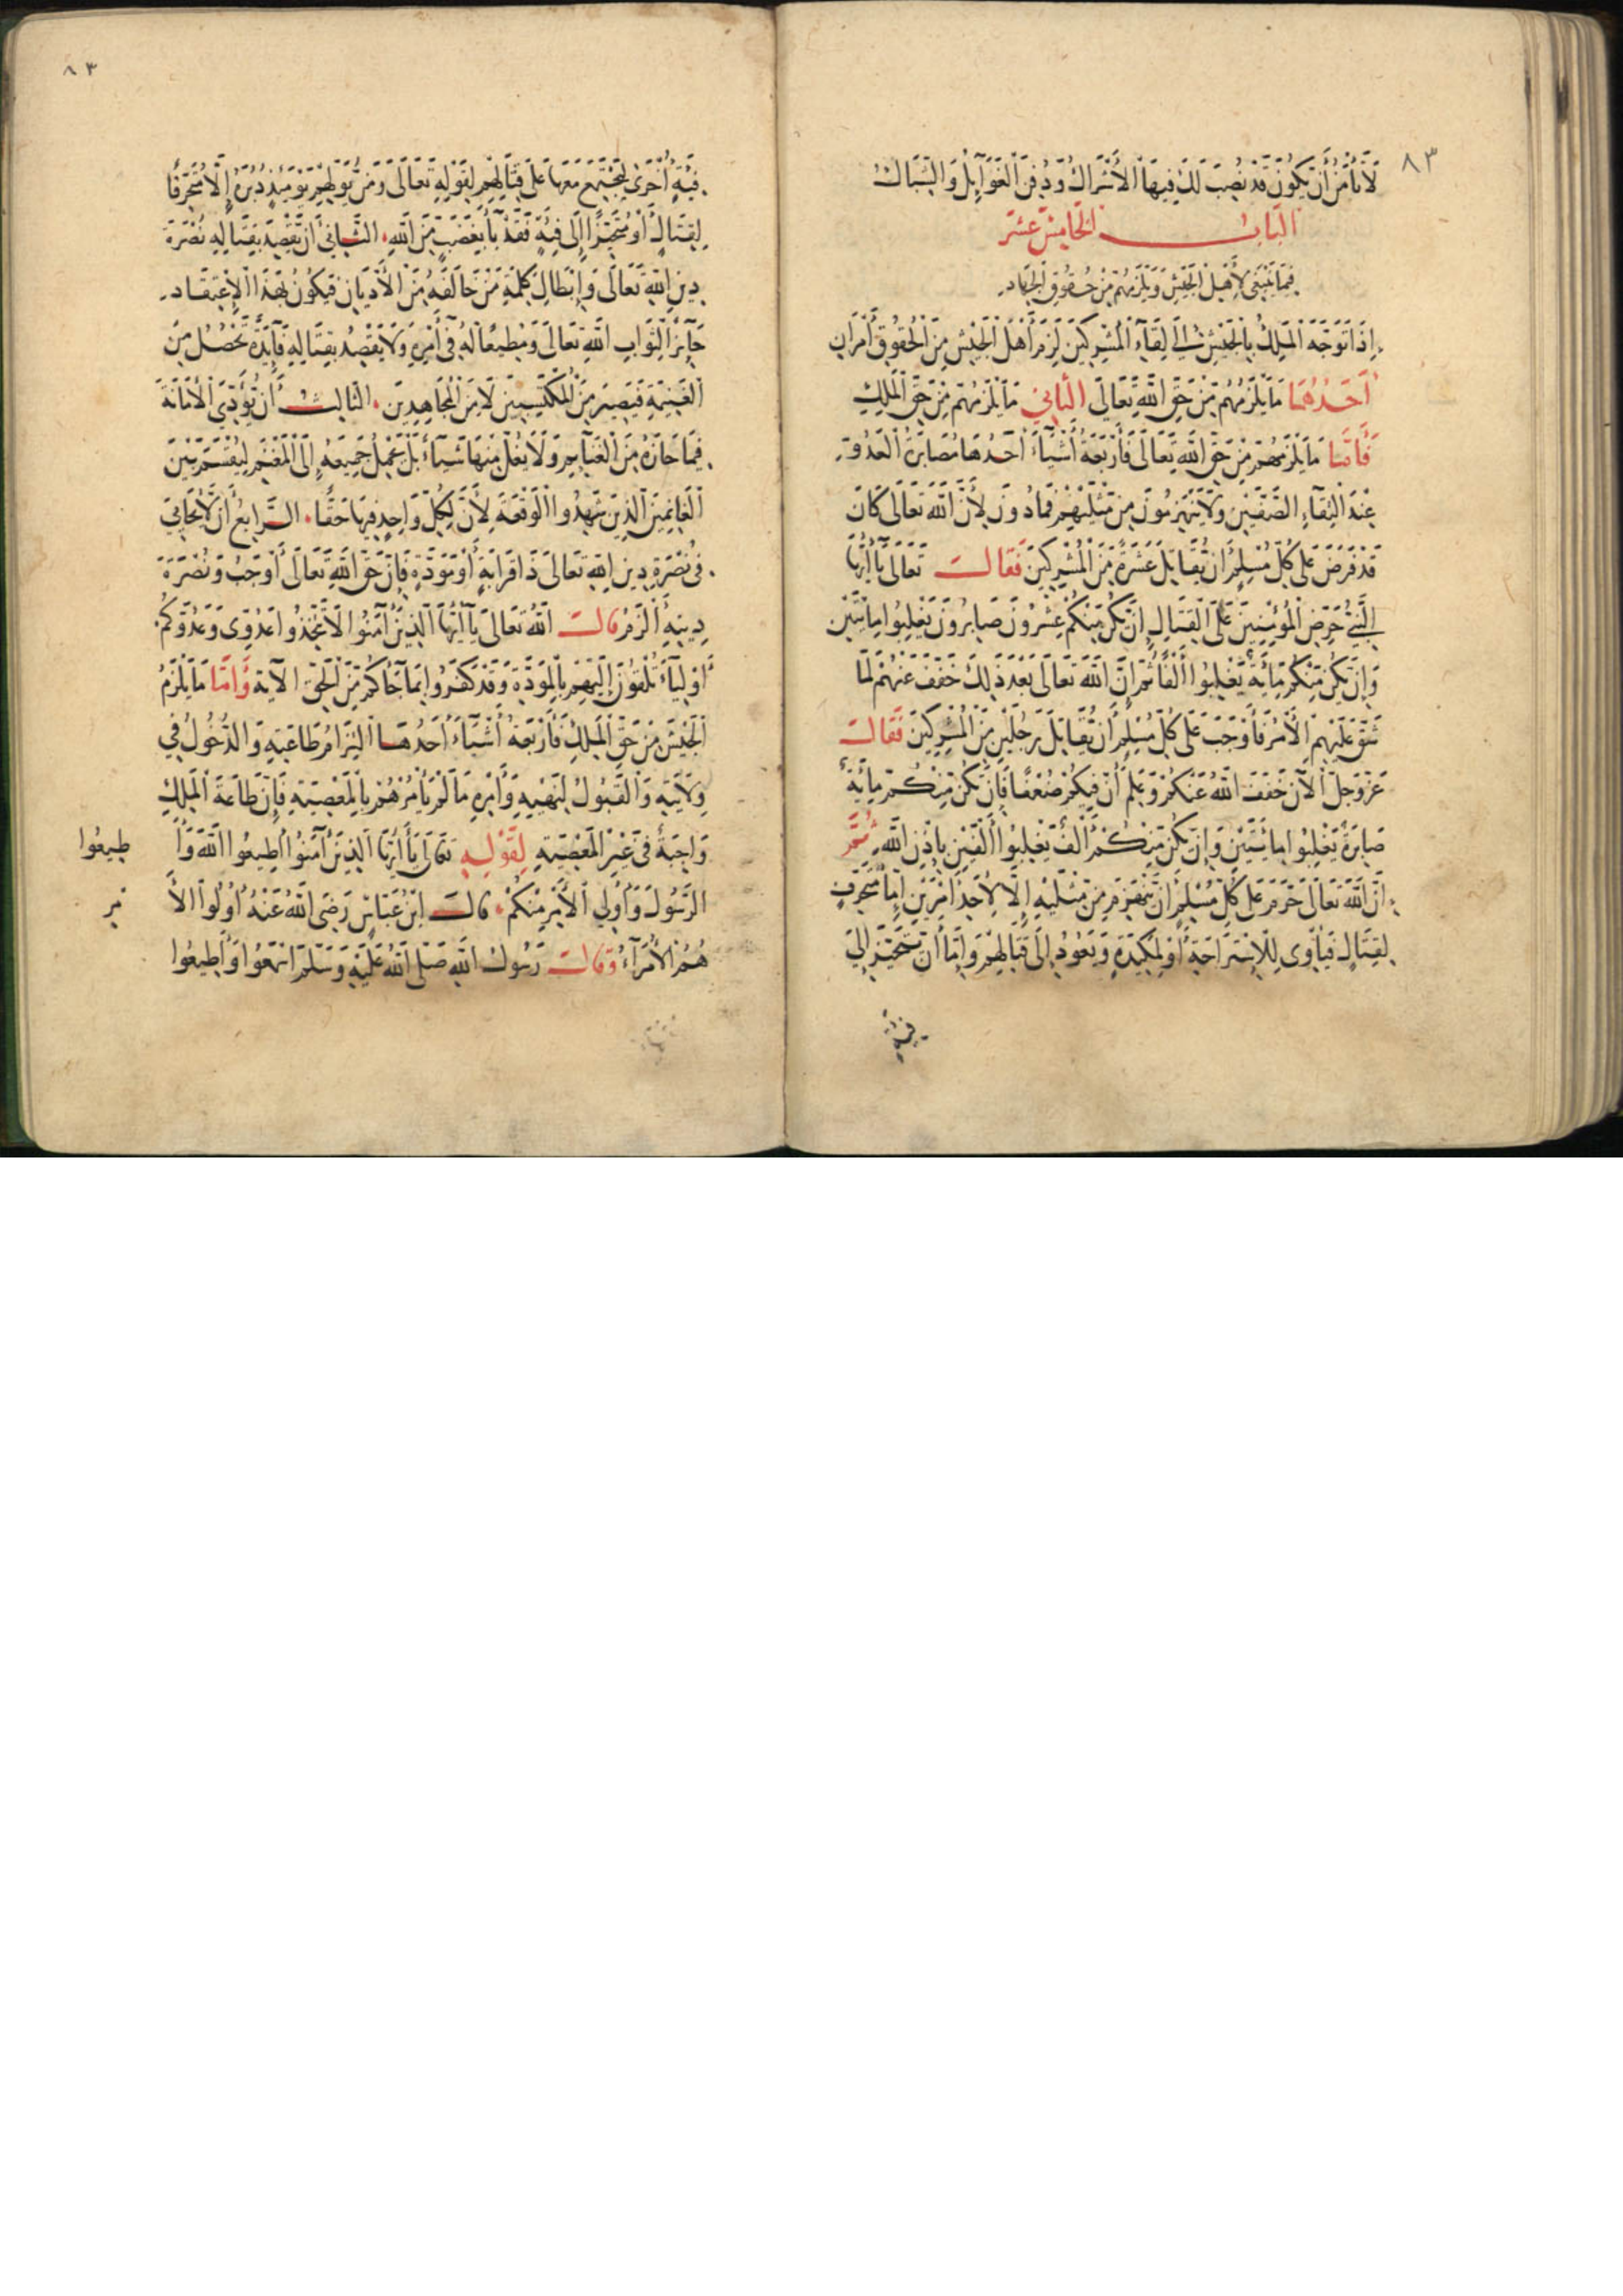 ٨٣
لَا تَأْمَنْ أَنْ تَكُونَ قَدْ نُصِبَ لَكَ فِيهَا الْأَشْرَاكُ وَدُفِنَ الْغَوَآئِلُ وَالشِّبَاكُ
الباب الخامس عشر
فيما ينبغي لأهل الجيش ويلزمهم من حقوق الجهاد
إذا توجه الملك بالجيش إلى لقآء المشركين لزم أهل الجيش من الحقوق أمران
أحدهما ما يلزمهم من حق الله تعالى الثاني ما يلزمهم من حق الملك
فأما ما يلزمهم من حق الله تعالى فأربعة أشيآء أحدها مصابرة العدو
عند التقآء الصفين ولا ينهزمون من مثليهم فما دون لأن الله تعالى كان
قد فرض على كل مسلم أن يقاتل عشرة من المشركين فقال تعالى يآ أيها
النبي حرض المؤمنين على القتال إن يكن منكم عشرون صابرون يغلبوا مائتين
وإن يكن منكم مائة يغلبوا ألفا ثم إن الله تعالى بعد ذلك خفف عنهم لما
شق عليهم الأمر فأوجب على كل مسلم أن يقاتل رجلين من المشركين فقال
عز وجل الآن خفف الله عنكم وعلم أن فيكم ضعفا فإن تكن منكم مائة
صابرة يغلبوا مائتين وإن يكن منكم ألف يغلبوا ألفين بإذن الله ثم
إن الله تعالى حرم على كل مسلم أن ينهزم من مثليه إلا لأحد أمرين إما متحرف
لقتال فيأوى للاستراحة أو لمكيدة ويعود إلى قتالهم وإما أن يتحيز إلى
فئة
٨٣
فئة أخرى ليجتمع معها على قتالهم لقوله تعالى ومن يولهم يومئذ دبره إلا متحرفا
لقتال أو متحيزا إلى فئة فقد بآء بغضب من الله الثاني أن يقصد بقتاله نصرة
دين الله تعالى وإبطال كلمة من خالفه من الأديان فيكون بهذا الاعتقاد
حآئز الثواب الله تعالى ومطيعا له في أمره ولا يقصد بقتاله فآئدة تحصل من
الغنيمة فيصير من المكتسبين لا من المجاهدين الثالث أن يؤدي الأمانة
فيما حازه من الغنآئم ولا يغل منها شيآء بل يحمل جميعه إلى المغنم ليقتسم بين
الغانمين الذين شهدوا الوقعة لأن لكل واحد فيها حقا الرابع أن لا يحابي
في نصرة دين الله تعالى ذا قرابة أو مودة فإن حق الله تعالى أوجب ونصرة
دينه ألزم قال الله تعالى يآ أيها الذين آمنوا لا تتخذوا عدوي وعدوكم
أوليآء تلقون إليهم بالمودة وقد كفروا بما جآءكم من الحق الآية وأما ما يلزم
الجيش من حق الملك فأربعة أشيآء أحدها التزام طاعته والدخول في
ولايته والقبول لنهيه وأمره ما لم يأمرهم بالمعصية فإن طاعة الملك
واجبة في غير المعصية لقوله تعالى يآ أيها الذين آمنوا أطيعوا الله وأ
طيعوا
الرسول وأولي الأمر منكم قال ابن عباس رضي الله عنه أولوا الأ
مر
هم الأمرآء وقال رسول الله صلى الله عليه وسلم اسمعوا وأطيعوا